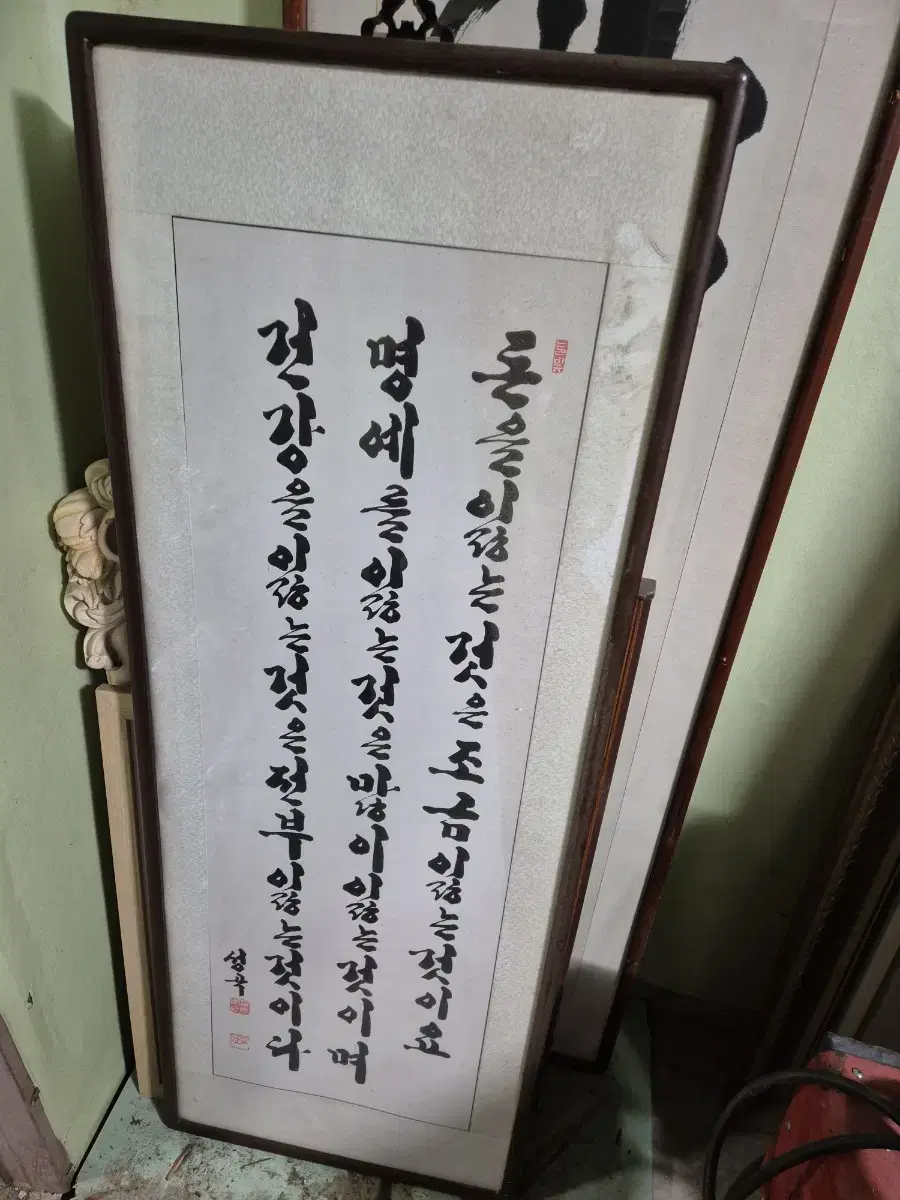 돈을 잃는 것은 조금 잃는 것이요
명예를 잃는 것은 많이 잃는 것이며
건강을 잃는 것은 전부 잃는 것이다